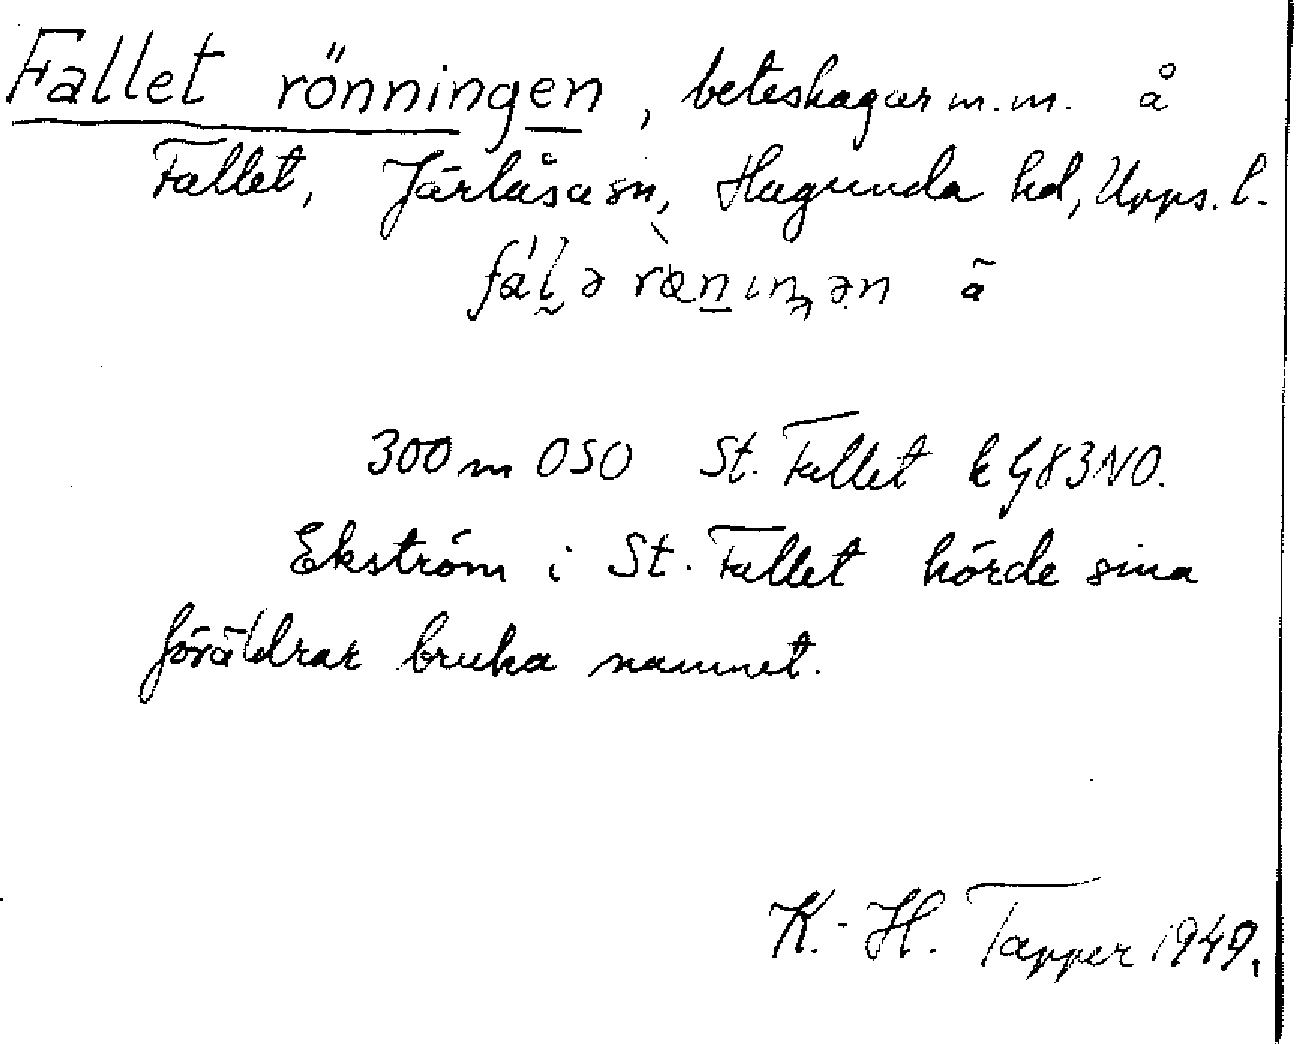 Fallet rönningen, beteshagar m.m. å
Fallet, Järlåsa sn, Hagunda hd, Upps. l.
300 m OSO St. Fallet k G83NO.
Ekström i St. Fallet hörde sina
föräldrar bruka namnet.
K.-H. Tapper 1949.